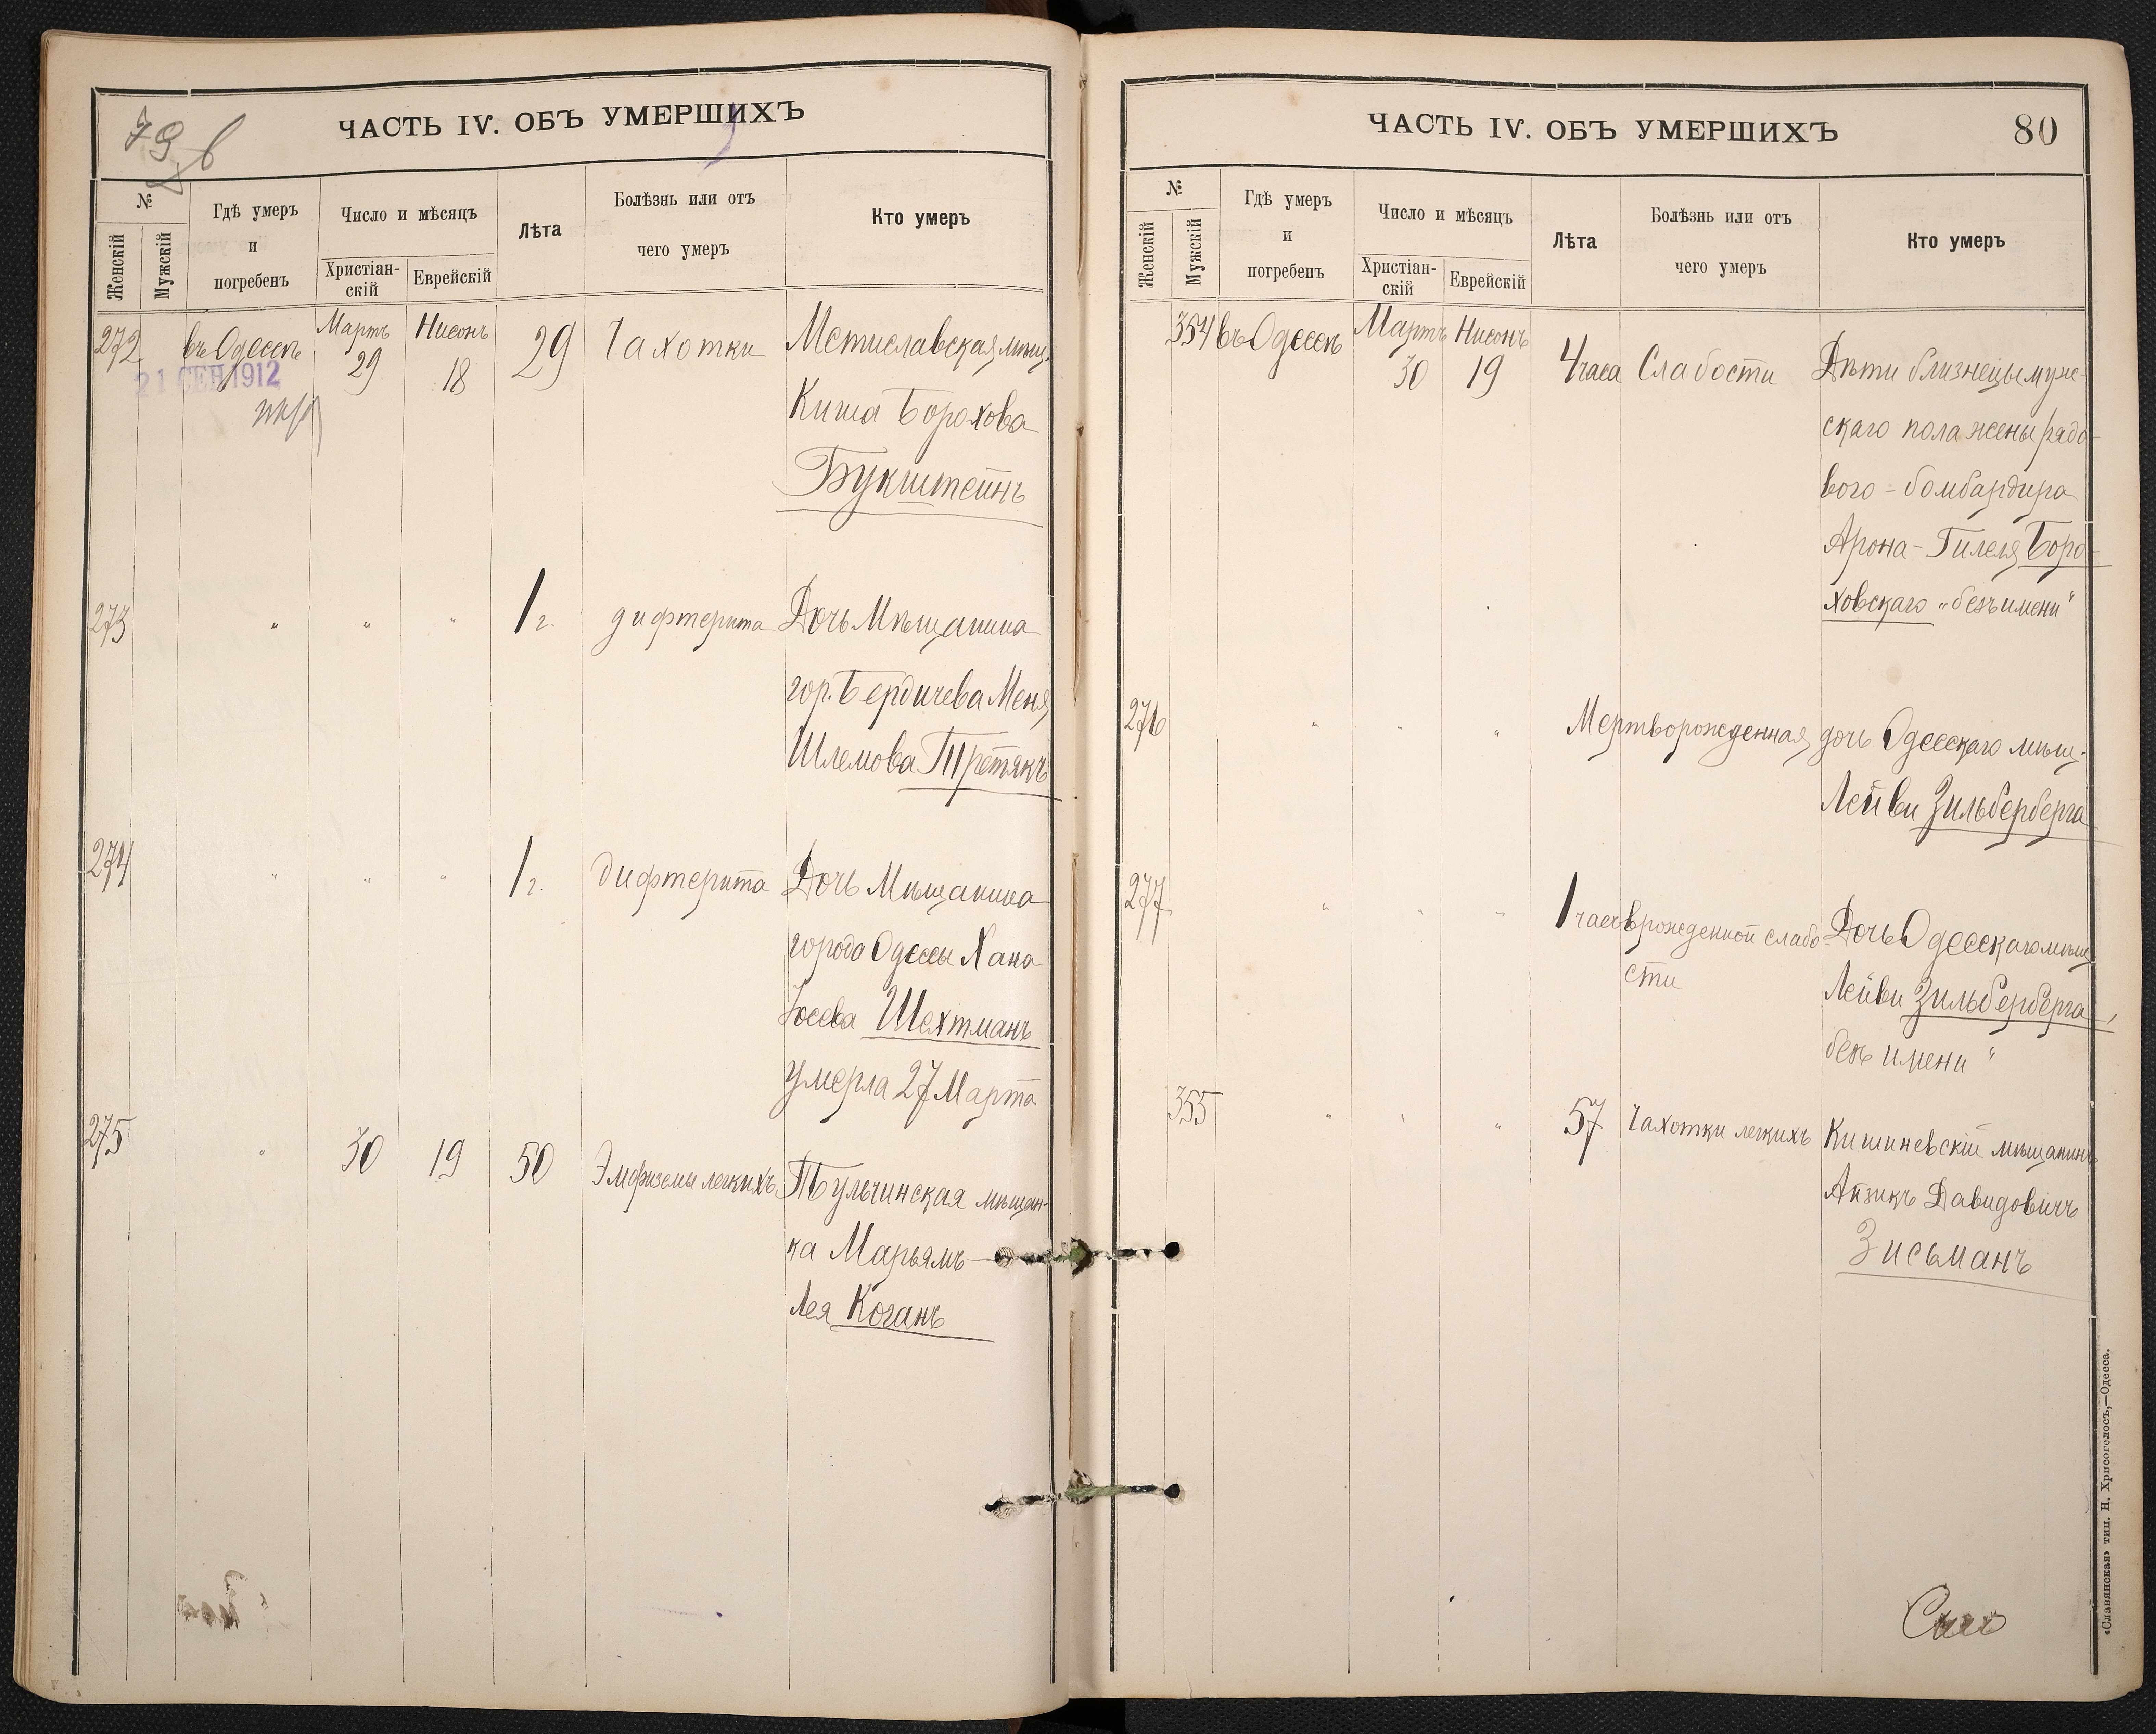 79
ЧАСТЬ IV. ОБЪ УМЕРШИХЪ
№
Женскій
Мужскій
Гдѣ умеръ
и
погребенъ
Число и мѣсяцъ
Христіан-
скій
Еврейскій
Лѣта
Болѣзнь или отъ
чего умеръ
Кто умеръ
272 въ Одессѣ Мартъ 29 Нисонъ 18 29 Чахотки Мстиславская мѣщ.
21 СЕН 1912
Киша Борохова
Букштейнъ
273 " " " 1 г. дифтерита Дочь Мѣщанина
гор. Бердичева Меня
Шлемова Третякъ
274 " " " 1 г. дифтерита Дочь Мѣщанина
города Одессы Хана
Іосева Шехтманъ
умерла 27 Марта
275 " 30 19 50 Эмфиземы легкихъ Тульчинская мѣщан-
ка Марьямъ-
Лея Коганъ
ЧАСТЬ IV. ОБЪ УМЕРШИХЪ
80
№
Женскій
Мужскій
Гдѣ умеръ
и
погребенъ
Число и мѣсяцъ
Христіан-
скій
Еврейскій
Лѣта
Болѣзнь или отъ
чего умеръ
Кто умеръ
354 въ Одессѣ Мартъ 30 Нисонъ 19 4 часа Слабости Дѣти близнецы муж-
скаго пола жены рядо-
вого-бомбардира
Арона-Гилеля Боро-
ховскаго „безъ имени"
276 " " " Мертворожденная дочь Одесскаго мѣщ.
Лейви Зильберберга
277 " " " 1 часъ врожденной слабо- Дочь Одесскаго мѣщ.
сти Лейви Зильберберга,
безъ имени "
355 " " " 57 Чахотки легкихъ Кишиневскій мѣщанинъ
Айзикъ Давидовичъ
Зисьманъ
«Славянская» тип. Н. Хрисогелосъ,—Одесса.